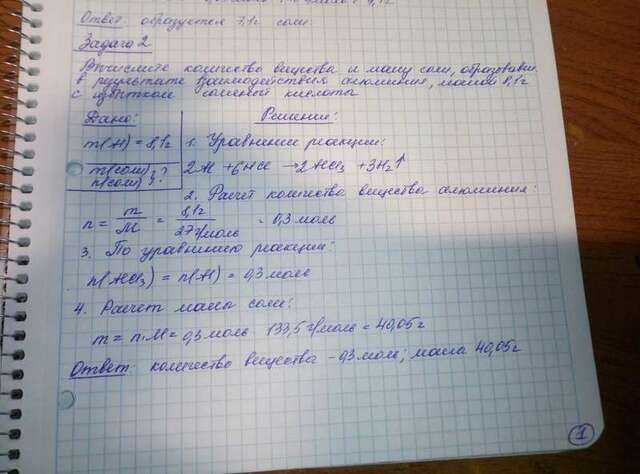 Ответ: образуется 7,1г соли.
Задача 2
Вычислите количество вещества и массу соли, образовавш.
в результате взаимодействия алюминия, массой 8,1г
с избытком соляной кислоты
Дано:
m(Al) = 8,1г
m(соли)
n(соли) }?
Решение:
1. Уравнение реакции:
2Al + 6HCl → 2AlCl₃ + 3H₂↑
2. Расчет количества вещества алюминия:
n = m/M = 8,1г/27г/моль = 0,3 моль
3. По уравнению реакции:
n(AlCl₃) = n(Al) = 0,3 моль
4. Расчет массы соли:
m = n·M = 0,3 моль · 133,5 г/моль = 40,05г
Ответ: количество вещества - 0,3 моль; масса 40,05г
1